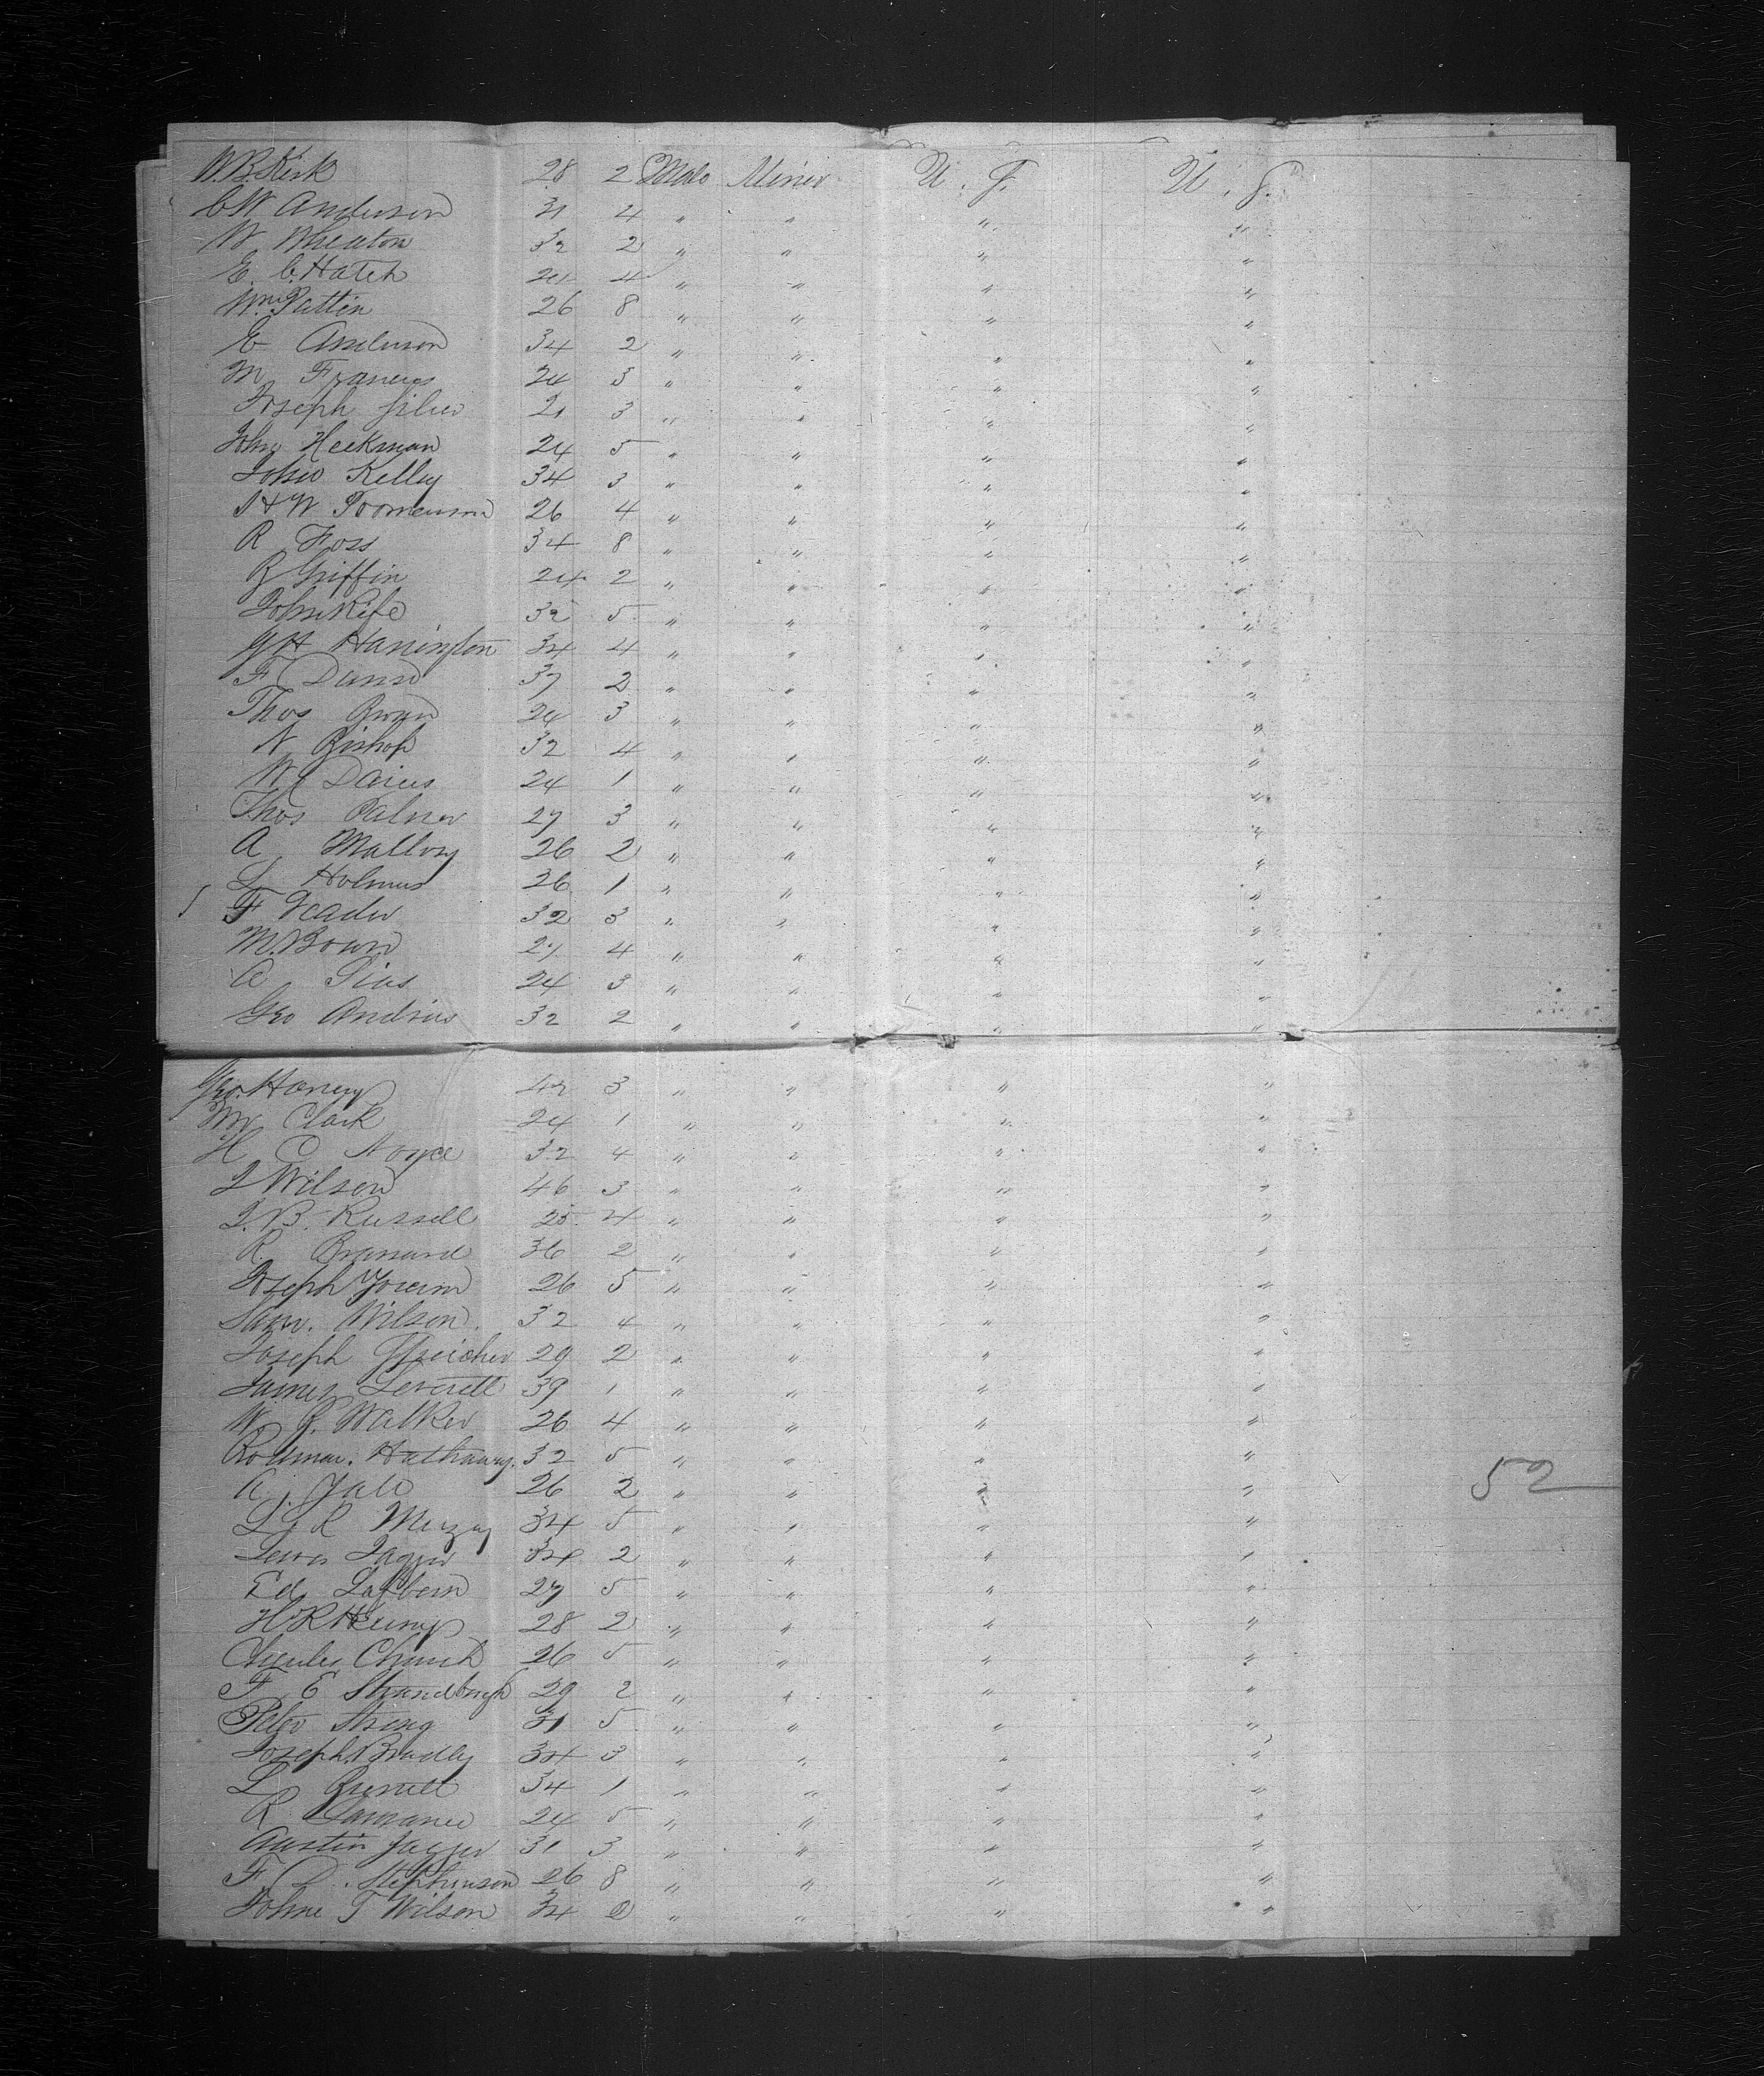 W.B. Kirk 28 2 Male Miner U. S. U. S.
C W Anderson 31 4 " " " "
W Wheaton 32 2 " " " "
E. C. Hatch 24 4 " " " "
Wm Pattin 26 8 " " " "
E Anderson 34 2 " " " "
M Frances 24 3 " " " "
Joseph 21 3 " " " "
John Heckman 24 5 " " " "
John Kelley 34 3 " " " "
26 4 " " " "
R Foss 34 8 " " " "
R Griffin 24 2 " " " "
John 32 5 " " " "
G H Harrington 34 4 " " " "
F 37 2 " " " "
Thos Brown 24 3 " " " "
N Bishop 32 4 " " " "
W 24 1 " " " "
Thos Palmer 27 3 " " " "
A Mallory 26 2 " " " "
L Holmes 26 1 " " " "
F 32 3 " " " "
M. Bown 27 4 " " " "
A 24 3 " " " "
Geo Andrius 32 2 " " " "
Geo. Haney 42 3 " " " "
Clark 24 1 " " " "
H C Noyce 32 4 " " " "
Wilson 46 3 " " " "
B. Russell 25 4 " " " "
R. 36 2 " " " "
Joseph 26 5 " " " "
Sam. Wilson. 32 4 " " " "
Joseph 29 2 " " " "
James Leverett 39 1 " " " "
W Walker 26 4 " " " "
Hathaway. 32 5 " " " "
A. 26 2 " " " " 52
34 5 " " " "
34 2 " " " "
Ed 27 5 " " " "
H R 28 2 " " " "
Charles Church 26 5 " " " "
F E Strandburgh 29 2 " " " "
Peter String 31 5 " " " "
Joseph Bradley 34 3 " " " "
L 34 1 " " " "
R 24 5 " " " "
Austin 31 3 " " " "
F. D. Stephenson 26 8 " " " "
Johne T Wilson 34 2 " " " "